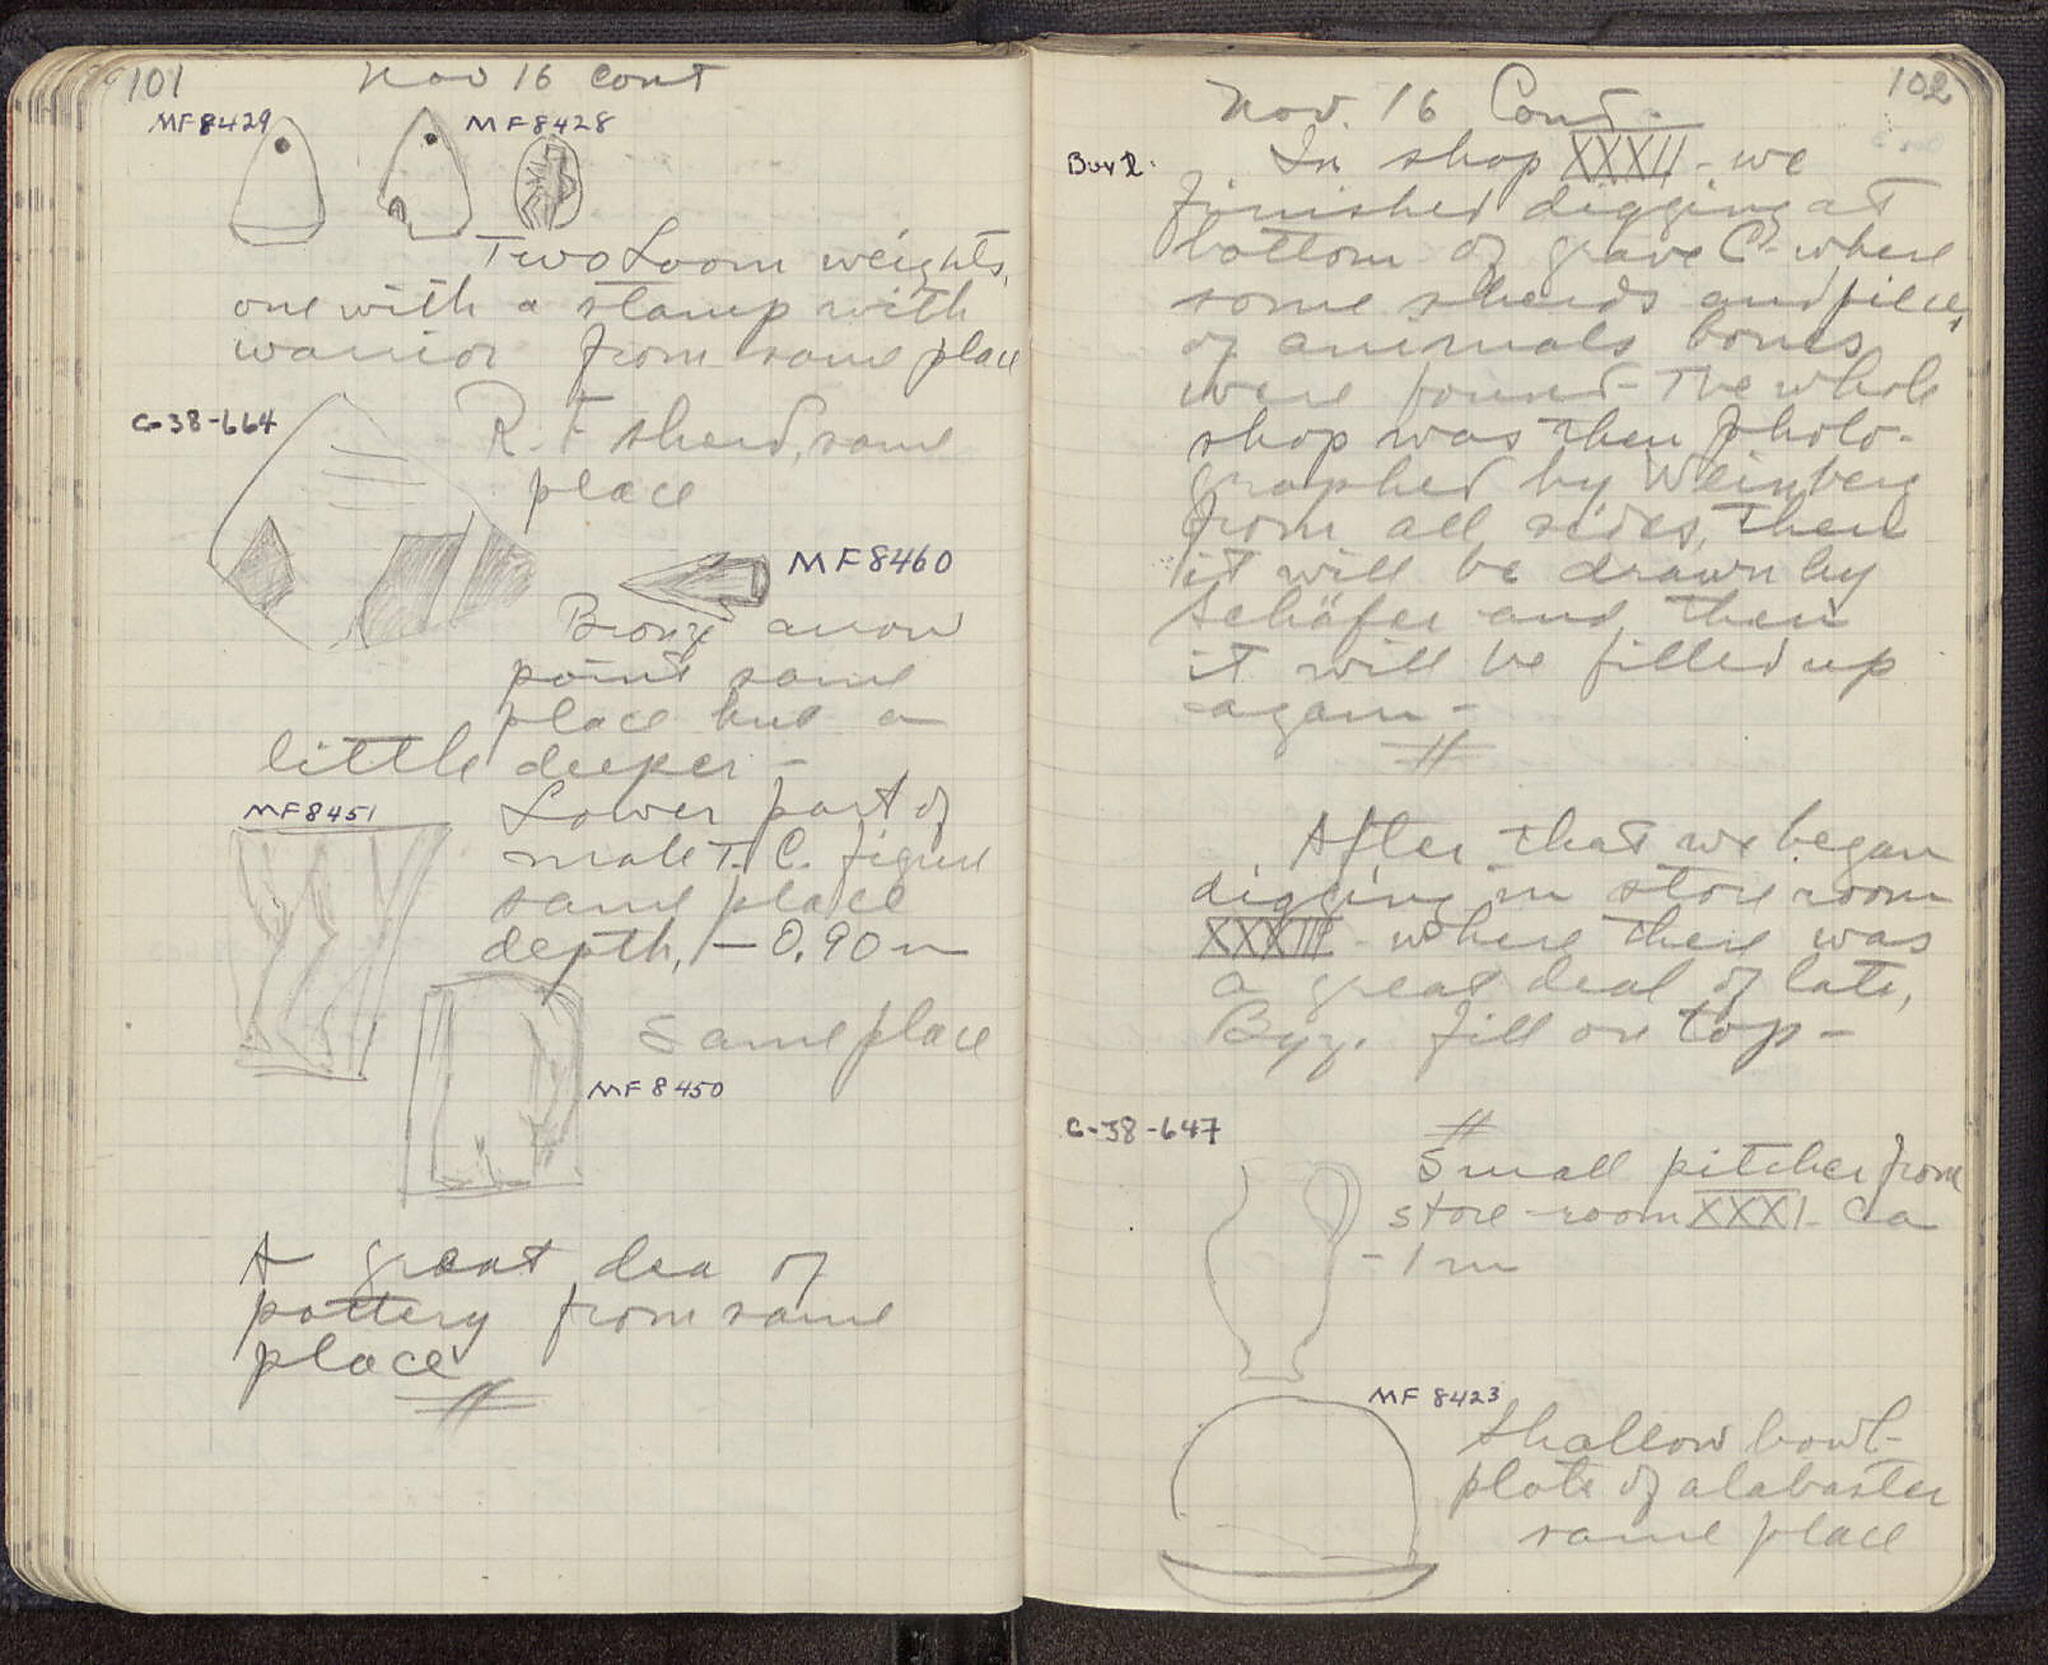 101
Nov 16 cont
MF 8429
MF 8428
Two Loom weights,
one with a stamp with
warrior from same place
C-38-664
R. F sherd, same
place
MF 8460
Bronze arrow
point same
place but a
little deeper -
MF 8451
Lower part of
male T. C. figure
same place
depth, - 0.90 m
Same place
MF 8450
A great dea of
pottery from same
place
102
Nov. 16 Cont.
In shop XXXII - we
finished digging at
bottom of grave C - where
some sherds and pieces
of animals bones
were found - The whole
shop was then photo-
graphed by Weinberg
from all sides, then
it will be drawn by
Schäfer and then
it will be filled up
again -
After that we began
digging in store room
XXXIII - where there was
a great deal of late,
Byz. fill on top -
C-38-647
Small pitcher from
store-room XXXI - Ca
- 1 m
MF 8423
Shallow bowl-
plate of alabaster
same place